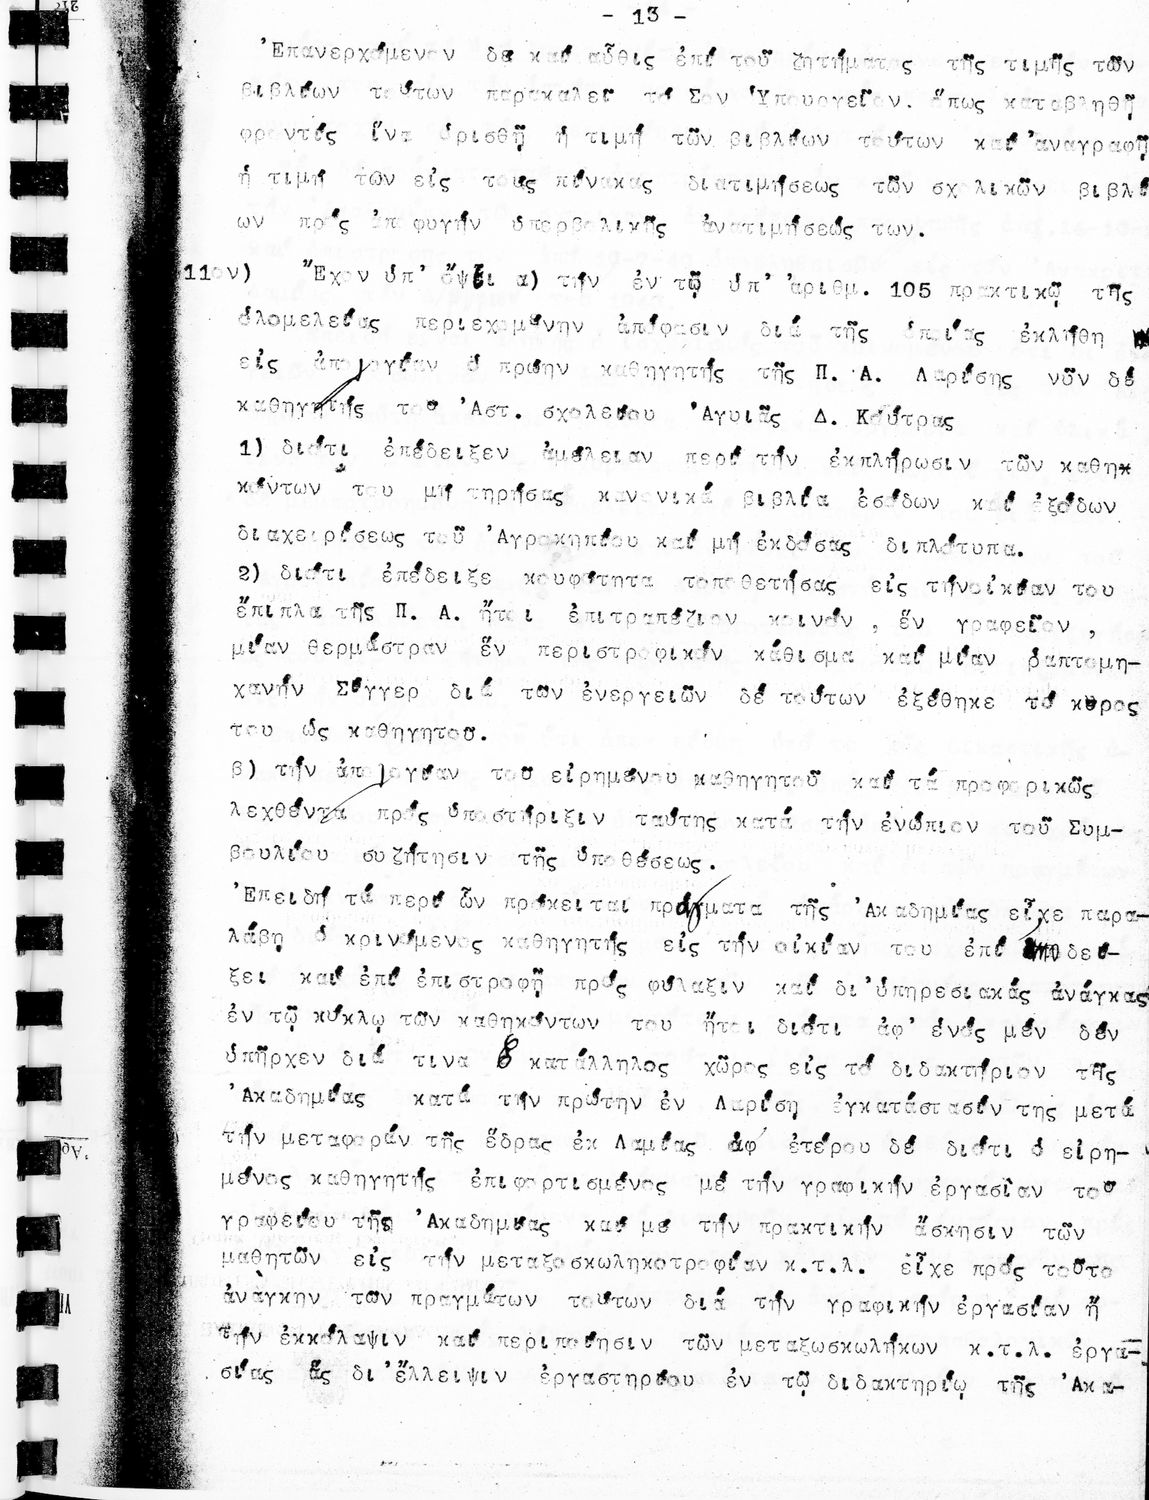 - 13 -
Ἐπανερχόμενον δέ καί αὖθις ἐπί τοῦ ζητήματος τῆς τιμῆς τῶν
βιβλίων τούτων παρακαλεῖ τό Σον Ὑπουργεῖον. ὅπως καταβληθῇ
φροντίς ἵνα ὁρισθῇ ἡ τιμή τῶν βιβλίων τούτων καί ἀναγραφῇ
ἡ τιμή των εἰς τούς πίνακας διατιμήσεως τῶν σχολικῶν βιβλί
ων πρός ἀποφυγήν ὑπερβολικῆς ἀνατιμήσεώς των.
11ον) Ἔχον ὑπ' ὄψει α) τήν ἐν τῷ ὑπ' ἀριθμ. 105 πρακτικῷ τῆς
ὁλομελείας περιεχομένην ἀπόφασιν διά τῆς ὁποίας ἐκλήθη
εἰς ἀπολογίαν ὁ πρώην καθηγητής τῆς Π. Α. Λαρίσης νῦν δέ
καθηγητής τοῦ Ἀστ. σχολείου Ἀγυιᾶς Δ. Κούτρας
1) διότι ἐπέδειξεν ἀμέλειαν περί τήν ἐκπλήρωσιν τῶν καθη
κόντων του μή τηρήσας κανονικά βιβλία ἐσόδων καί ἐξόδων
διαχειρίσεως τοῦ Ἀγροκηπίου καί μή ἐκδόσας διπλότυπα.
2) διότι ἐπέδειξε κουφότητα τοποθετήσας εἰς τήνοἰκίαν του
ἔπιπλα τῆς Π. Α. ἤτοι ἐπιτραπέζιον κοινόν , ἕν γραφεῖον ,
μίαν θερμάστραν ἕν περιστροφικόν κάθισμα καί μίαν ῥαπτομη-
χανήν Σίγγερ διά των ἐνεργειῶν δέ τούτων ἐξέθηκε τό κῦρος
του ὡς καθηγητοῦ.
β) τήν ἀπολογίαν τοῦ εἰρημένου καθηγητοῦ καί τά προφορικῶς
λεχθέντα πρός ὑποστήριξιν ταύτης κατά τήν ἐνώπιον τοῦ Συμ-
βουλίου συζήτησιν τῆς ὑποθέσεως.
Ἐπειδή τά περί ὧν πρόκειται πράγματα τῆς Ἀκαδημίας εἶχε παρα-
λάβῃ ὁ κρινόμενος καθηγητής εἰς τήν οἰκίαν του ἐπί ἀποδεί-
ξει καί ἐπί ἐπιστροφῇ πρός φύλαξιν καί δι'ὑπηρεσιακάς ἀνάγκας
ἐν τῷ κύκλῳ τῶν καθηκόντων του ἤτοι διότι ἀφ' ἑνός μέν δέν
ὑπῆρχεν διά τινα ὁ κατάλληλος χῶρος εἰς τό διδακτήριον τῆς
Ἀκαδημίας κατά τήν πρώτην ἐν Λαρίσῃ ἐγκατάστασίν της μετά
τήν μεταφοράν τῆς ἕδρας ἐκ Λαμίας ἀφ' ἑτέρου δέ διότι ὁ εἰρη-
μένος καθηγητής ἐπιφορτισμένος μέ τήν γραφικήν ἐργασίαν τοῦ
γραφείου τῆς Ἀκαδημίας καί μέ τήν πρακτικήν ἄσκησιν τῶν
μαθητῶν εἰς τήν μεταξοσκωληκοτροφίαν κ.τ.λ. εἶχε πρός τοῦτο
ἀνάγκην των πραγμάτων τούτων διά τήν γραφικήν ἐργασίαν ἤ
τήν ἐκκόλαψιν καί περιποίησιν τῶν μεταξωσκωλήκων κ.τ.λ. ἐργα-
σίας ἅς δι'ἔλλειψιν ἐργαστηρίου ἐν τῷ διδακτηρίῳ τῆς Ἀκα-